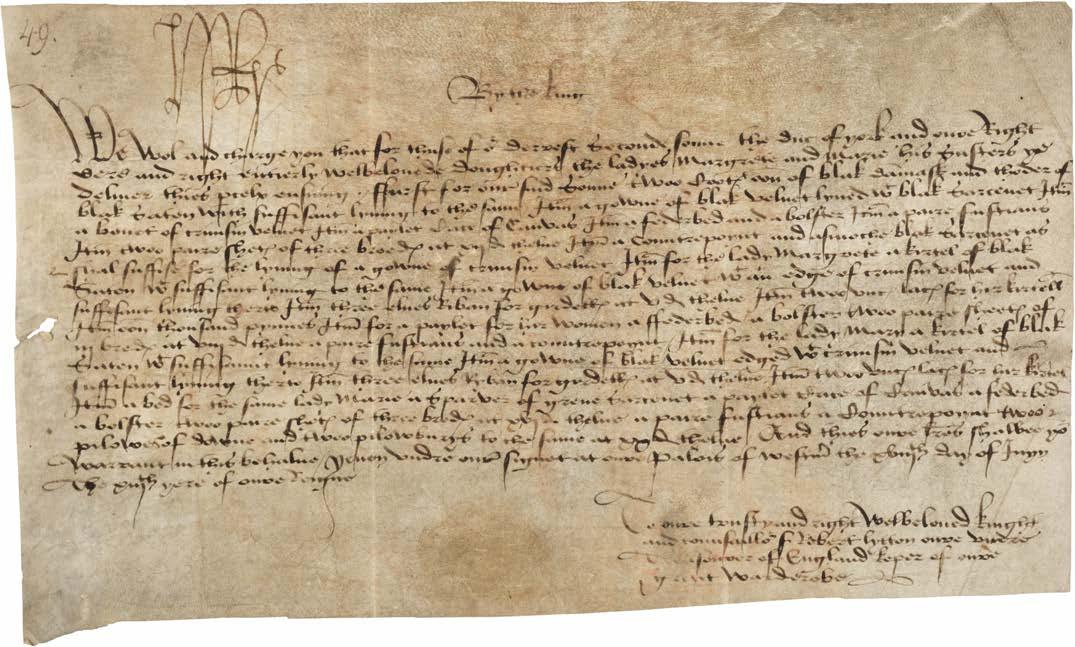 49.
By the king
We Wol and charge you that for thuse of oure derrest Second sonne the duc of york and oure Right
dere and right entierly Welbelovede doughters the ladyes Margrete and Marie his Susters ye
deliver thies pcelx ensuing ffurst for oure said Sonne twoo Cootx oon of blak damask and thoder of
blak Saten with suffisant lynyng to the same Itm a gowne of blak velvet lyned wt blak Sarcenet Itm
a bonet of crimsin velvet Itm a paylet case of Canvas Itm a federbed and a bolster Itm a paire fustians
Itm twoo paire shetx of three bredx at thelne Itm a Countrepoynt and asmoche blak Sarcenet as
shal suffise for the lynyng of a gowne of crimsin velvet Itm for the lady Margrete a kirtel of blak
Saten wt suffisant lynyng to the same Itm a gowne of blak velvet wt an edge of crimsin velvet and
suffisant lynyng therto Itm three elnes Riban for girdelx at vd thelne Itm twoo unc lacx for hir kirtell
Itm oon thousand pynnes Itm for a paylet for hir women a ffederbed a bolster twoo paire sheetx of
iij bredx at viijd thelne a paire fustians and a countrepoynt Itm for the lady Mary a kirtel of blak
Saten wt suffisant lynyng to the same Itm a gowne of blak velvet edged wt crimsin velvet and
suffisant lynyng therto Itm three elnes Riban for girdelx at vd thelne Itm twoo uncx lacx for hir kirtel
Itm a bed for the same lady Marie a Sparver of grene Sarcenet a paylet case of Canvas a federbed
a bolster twoo paire shetx of three bredx at thelne a paire fustians a Countrepoynt twoo
pilowes of downe and twoo pilowberys to the same at thelne And thies oure lres shalbee yor
Warrant in this behalve Yeven undre oure signet at oure Palois of westm the xviijth day of
The xiijth yere of oure Reigne
To oure trusty and right Welbeloved knight
and counsaillor Sr Robert lytton oure undre
Tresourer of England keper of oure
grete Warderobe